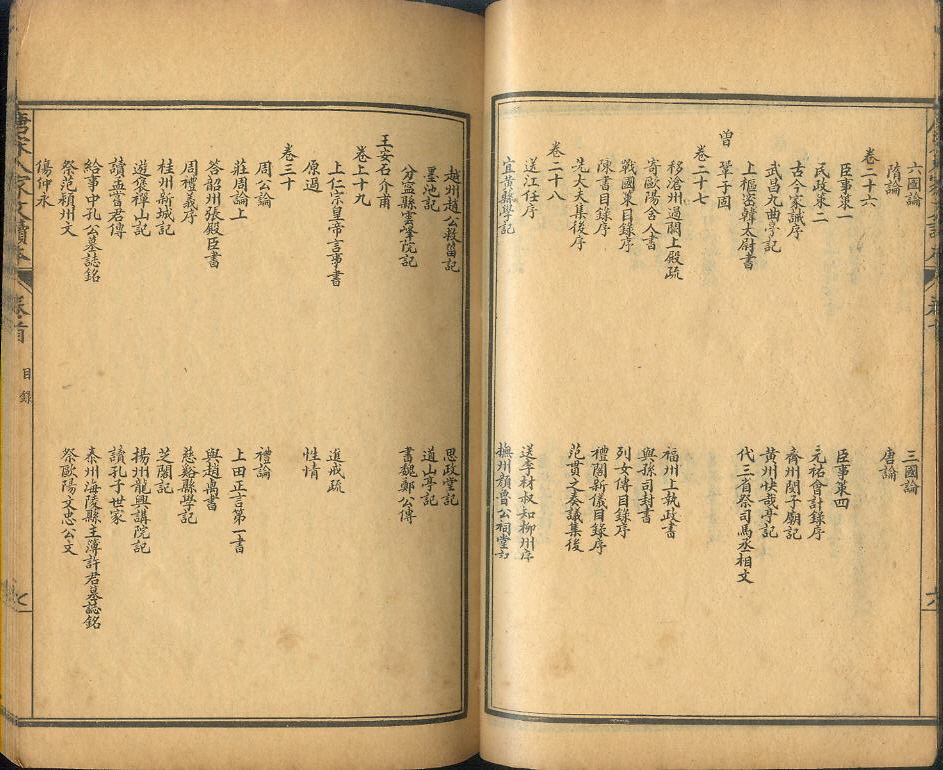 六國論 三國論
隋論 唐論
卷二十六
臣事策一 臣事策四
民政策二 元祐會計錄序
古今家誡序 齊州閔子廟記
武昌九曲亭記 黃州快哉亭記
上樞密韓太尉書 代三省祭司馬丞相文
曾鞏子固
卷二十七
移滄州過闕上殿疏 福州上執政書
寄歐陽舍人書 與孫司封書
戰國策目錄序 列女傳目錄序
陳書目錄序 禮閣新儀目錄序
先大夫集後序 范貫之奏議集後
卷二十八
送江任序 送李材叔知柳州序
宜黃縣學記 撫州顏魯公祠堂記
越州趙公救菑記 思政堂記
墨池記 道山亭記
分寧縣雲峯院記 書魏鄭公傳
王安石介甫
卷上十九
上仁宗皇帝言事書 進戒疏
原過 性情
卷三十
周公論 禮論
莊周論上 上田正言第二書
答韶州張殿臣書 與趙卨書
周禮義序 慈谿縣學記
桂州新城記 芝閣記
遊褒禪山記 揚州龍興講院記
讀孟嘗君傳 讀孔子世家
給事中孔公墓誌銘 泰州海陵縣主簿許君墓誌銘
祭范潁州文 祭歐陽文忠公文
傷仲永
唐宋八家文讀本 卷首 目錄